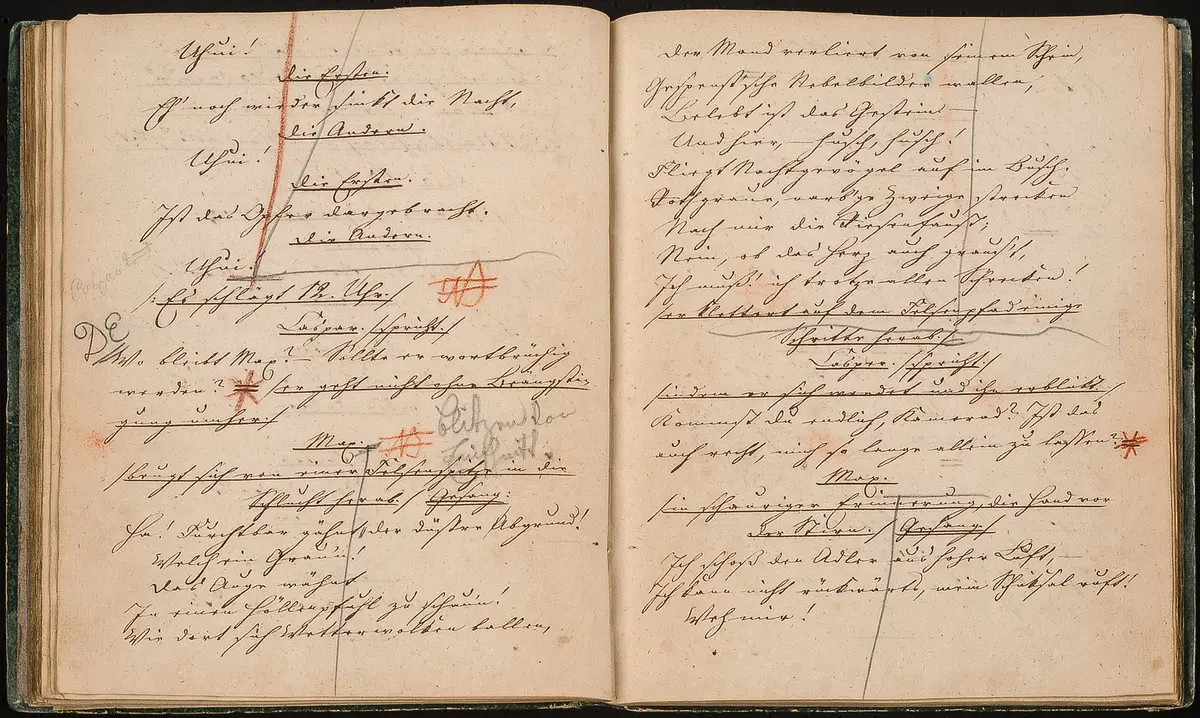 Uhui!
Die Ersten.
Eh' noch wieder sinkt die Nacht,
Die Andern.
Uhui!
Die Ersten.
Ist das Opfer dargebracht.
Die Andern.
Uhui!
/: Es schlägt 12. Uhr. /
Caspar. /spricht./
DE
Wo bleibt Max? — Sollte er wortbrüchig
werden? /er geht nicht ohne Beängsti-
gung umher./
Max.
/beugt sich von einer Felsenspitze in die
Schlucht herab./ Gesang:
Ha! Furchtbar gähnt der düstre Abgrund!
Welch ein Graun!
Das Auge wähnt
In einen Höllenpfuhl zu schaun!
Wie dort sich Wetterwolken ballen,
Der Mond verliert von seinem Schein,
Gespenst'sche Nebelbilder wallen,
Belebt ist das Gestein —
Und hier, — husch, husch!
Fliegt Nachtgevögel auf im Busch.
Rothgraue, narb'ge Zweige strecken
Nach mir die Riesenfaust;
Nein, ob das Herz auch graus't,
Ich muß! ich trotze allen Schrecken!
/er klettert auf dem Felsenpfad einige
Schritte herab./
Caspar. /spricht:/
/indem er sich wendet und ihn erblickt./
Kommst du endlich, Kamerad? Ist das
auch recht, mich so lange allein zu lassen?
Max.
/in schauriger Erinnerung, die Hand vor
der Stirn./ Gesang./
Ich schoß den Adler aus hoher Luft, —
Ich kann nicht rückwärts, mein Schicksal ruft!
Weh mir!